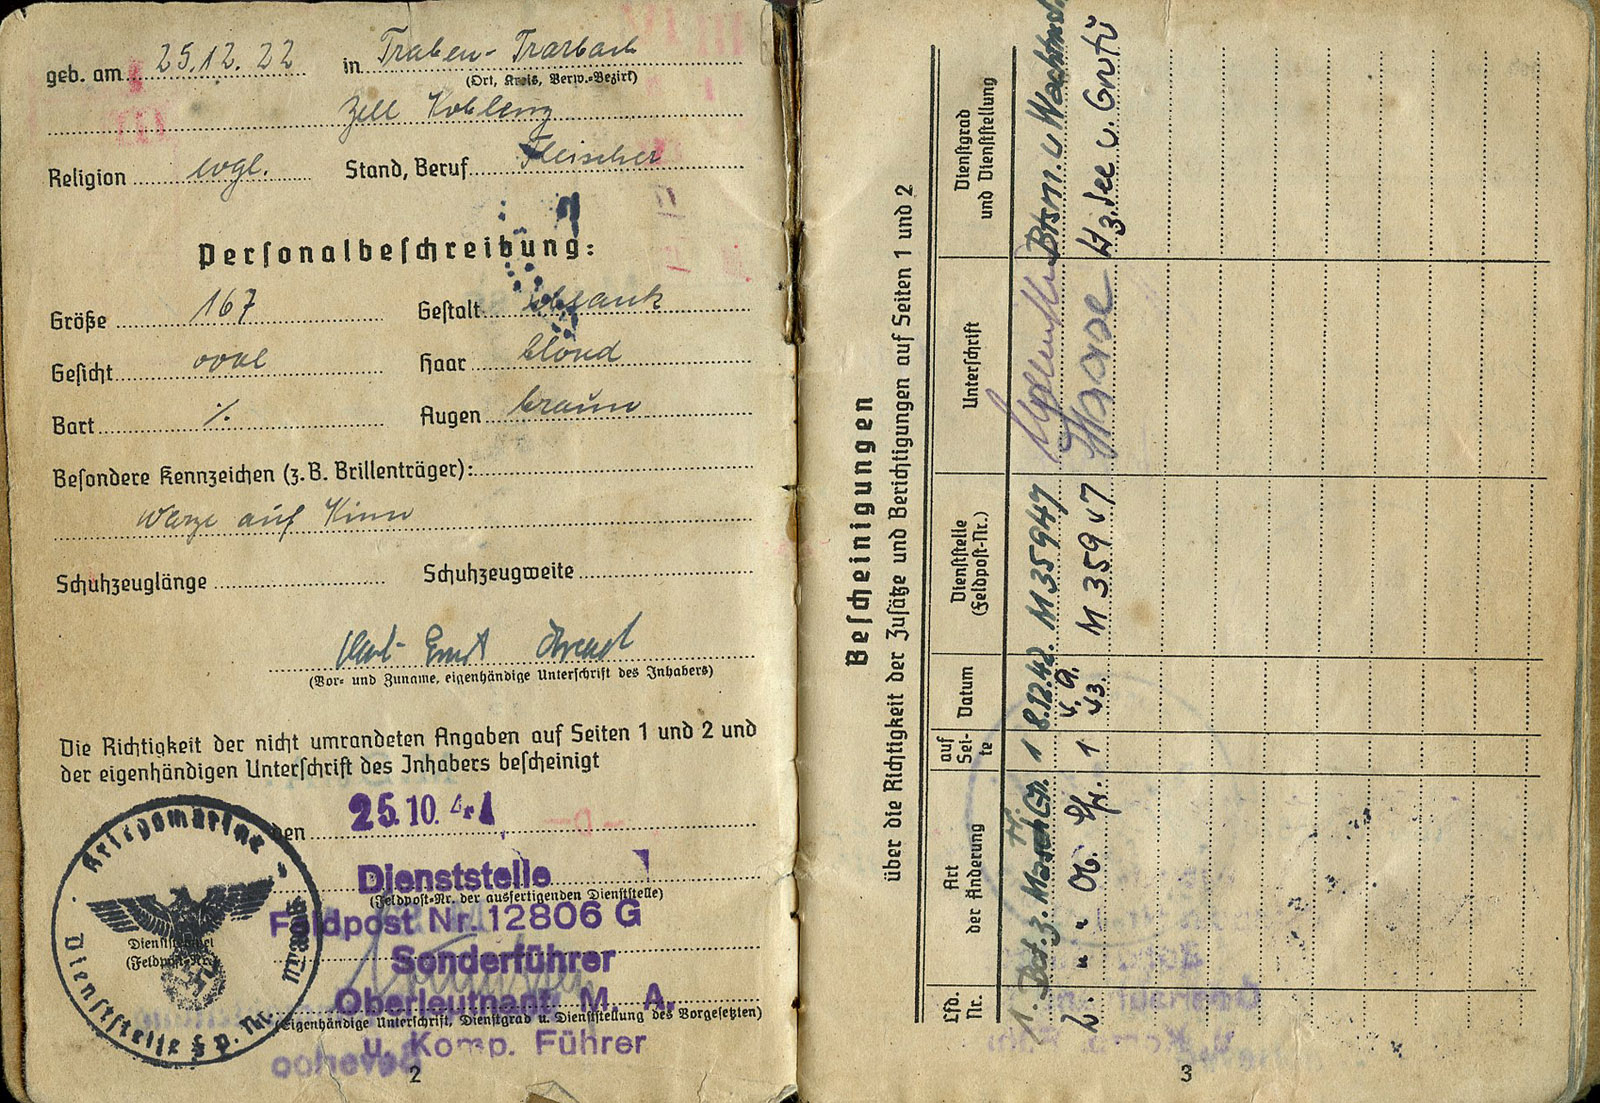 geb. am 25.12.22 in Traben-Trarbach
(Ort, Kreis, Verw.-Bezirk)
Zell Koblenz
Religion evgl. Stand, Beruf Fleischer
Personalbeschreibung:
Größe 167 Gestalt schlank
Gesicht oval Haar blond
Bart ./. Augen braun
Besondere Kennzeichen (z. B. Brillenträger):
Warze auf Kinn
Schuhzeuglänge Schuhzeugweite
Karl-Ernst
(Vor- und Zuname, eigenhändige Unterschrift des Inhabers)
Die Richtigkeit der nicht umrandeten Angaben auf Seiten 1 und 2 und
der eigenhändigen Unterschrift des Inhabers bescheinigt
den 25.10.41
Kriegsmarine
Dienststelle F.p. Nr.
Dienststempel
(Feldpost-Nr.)
Dienststelle
(Feldpost-Nr. der ausfertigenden Dienststelle)
Feldpost Nr. 12806 G
Sonderführer
Oberleutnant M. A.
(Eigenhändige Unterschrift, Dienstgrad u. Dienststellung des Vorgesetzten)
u. Komp. Führer
2
Bescheinigungen
über die Richtigkeit der Zusätze und Berichtigungen auf Seiten 1 und 2
Lfd. Nr. Art der Änderung auf Sei-te Datum Dienststelle (Feldpost-Nr.) Unterschrift Dienstgrad und Dienststellung
1. 1 8.12.42. M 35947 Btsm. u
2. " " 1 M 35947 Haase
3